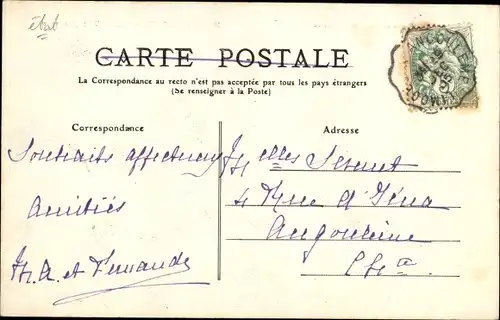 état
CARTE POSTALE
La Correspondance au recto n'est pas acceptée par tous les pays étrangers
(Se renseigner à la Poste)
Correspondance
Adresse
Souhaits affectueux
Amitiés
et Fernande
Melles
4 Rue d'Iéna
Angoulême
Chte